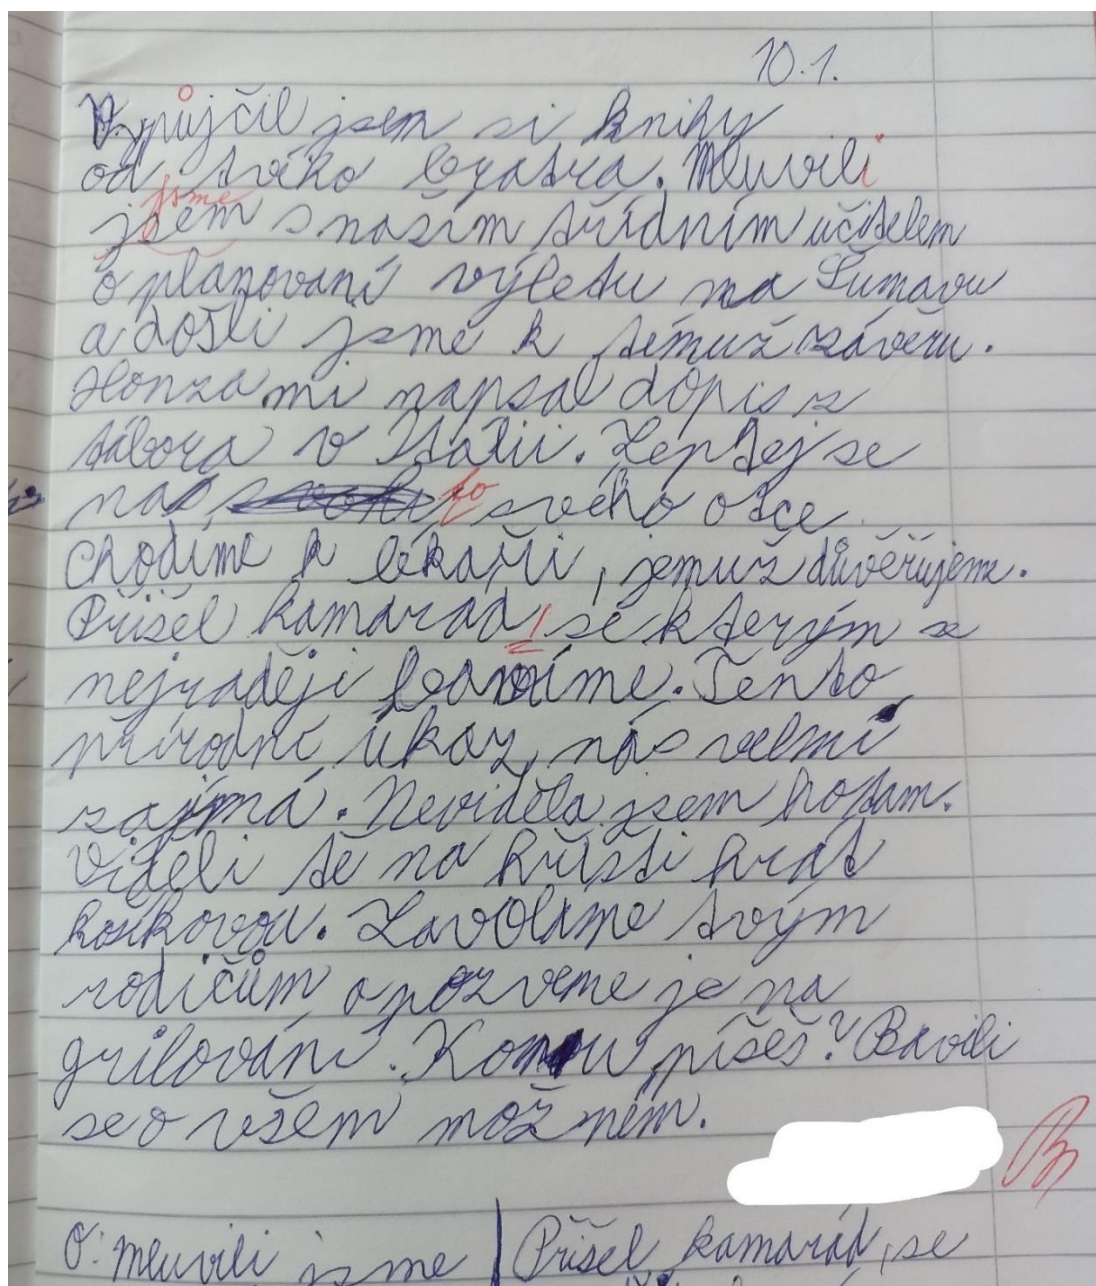 10.1.
Vypůjčil jsem si knihy
od tvého bratra. Mluvili
jsme
jsem s naším třídním učitelem
o plánovaní výletu na Šumavu
a došli jsme k témuž závěru.
Honza mi napsal dopis z
tábora v Itálii. Zeptej se
na to svého otce
Chodíme k lékaři, jemuž důvěřujeme.
Přišel kamarád, se kterým se
nejraději bavíme. Tento
přírodní úkaz nás velmi
zajímá. Neviděla jsem
Viděli tě na hřišti hrát
košíkovou. Zavoláme tvým
rodičům a pozveme je na
grilování. Komu píšeš? Bavili
se o všem možném.
O: mluvili jsme | Přišel kamarád, se